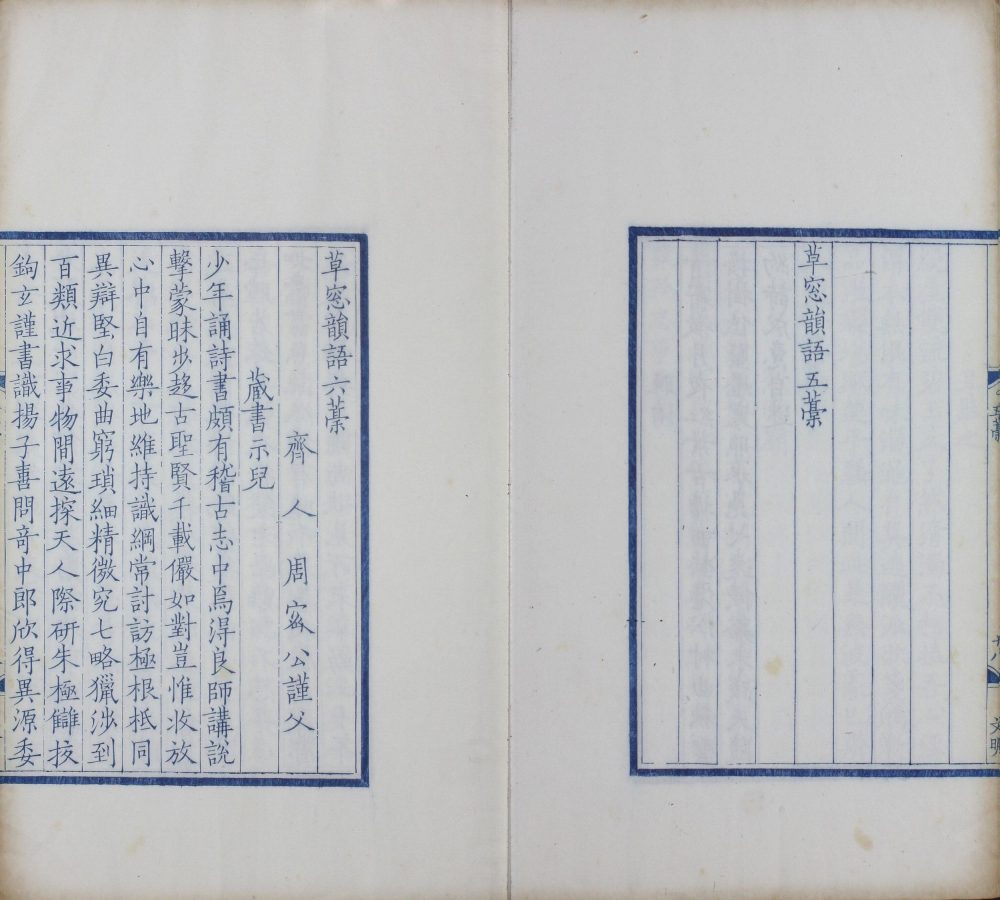 草窓韻語五藁
草窓韻語六藁
齊人周密公謹父
藏書示兒
少年誦詩書頗有稽古志中焉淂良師講說
擊蒙昧步趍古聖賢千載儼如對豈惟收放
心中自有樂地維持識綱常討訪極根柢同
異辯堅白委曲窮瑣細精微究七略獵涉到
百類近求事物間遠探天人際研朱極讎挍
鉤玄謹書識揚子喜問竒中郎欣得異源委